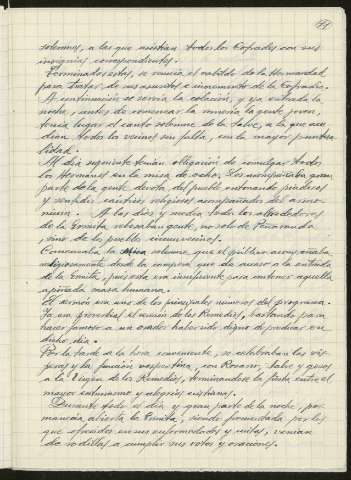 solemnes, a las que asistian todos los Cofrades con sus
insignias correspondientes.
Terminados estos, se reunia el cabildo de la Hermandad
para tratar de sus asuntos e incremento de la Cofradia.
A continuación se servia la colación, y ya entrada la
noche, antes de comenzar la la gente joven,
tenia lugar el canto solemne de la Salve, a la que acu-
dian todos los vecinos sin falta, con la mayor puntua-
lidad.
Al dia siguiente tenian obligación de comulgar todos
los Hermanos en la misa de ocho. Les acompañaba gran
parte de la gente devota del pueblo entonando piadosos
y sentidos cantires religiosos acompañados del
A las diez y media todos los alrededores
de la Ermita rebosaban gente, no solo de Penaranda,
sino de los pueblos circunvecinos.
Comenzaba la misa solemne, que el público acompañaba
religiosamente desde la que da acceso a la entrada
de la Ermita, pues esta era insuficiente para contener aquella
apiñada masa humana.
El sermón era uno de los principales números del programa.
Ya era proverbial el sermón de los Remedios, bastando para
hacer famoso a un orador haber sido digno de predicar en
dicho dia.
Por la tarde a la hora conveniente, se celebraban las vis-
peras y la función vespertina, con Rosario, Salve y gozos
a la Virgen de los Remedios, terminandose la fiesta entre el
mayor entusiasmo y alegrias cristianas.
Durante todo el dia y gran parte de la noche, per-
manecia abierta la Ermita, siendo frecuentada por los
que ofrecidos en sus enfermedades y cuitas, venian
de rodillas a cumplir sus votos y oraciones.